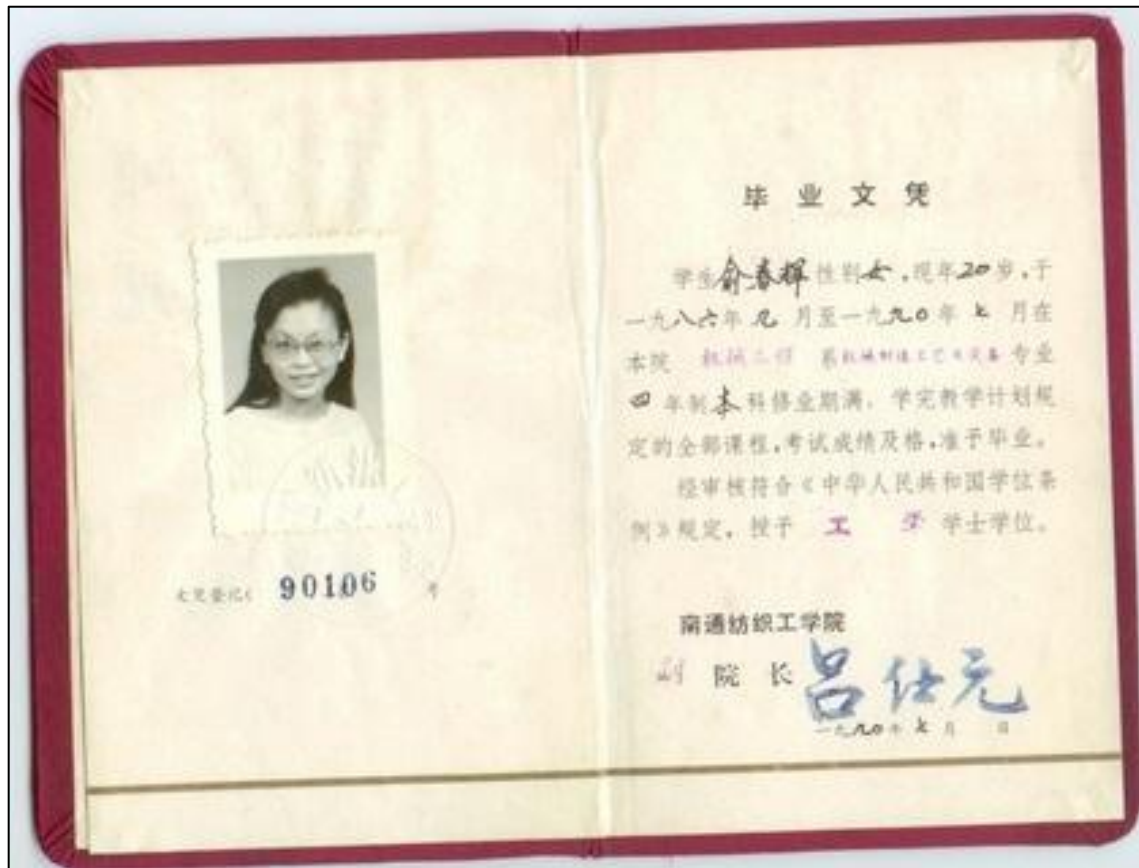 文凭登记 90106 号
毕业文凭
学生俞春辉性别女,现年20岁,于
一九八六年九月至一九九0年七月在
本院 机械工程 系机械制造工艺及设备专业
四年制本科修业期满,学完教学计划规
定的全部课程,考试成绩及格,准予毕业。
经审核符合《中华人民共和国学位条
例》规定,授予 工 学 学士学位。
南通纺织工学院
副院长 吕仕元
一九九0年七月 日